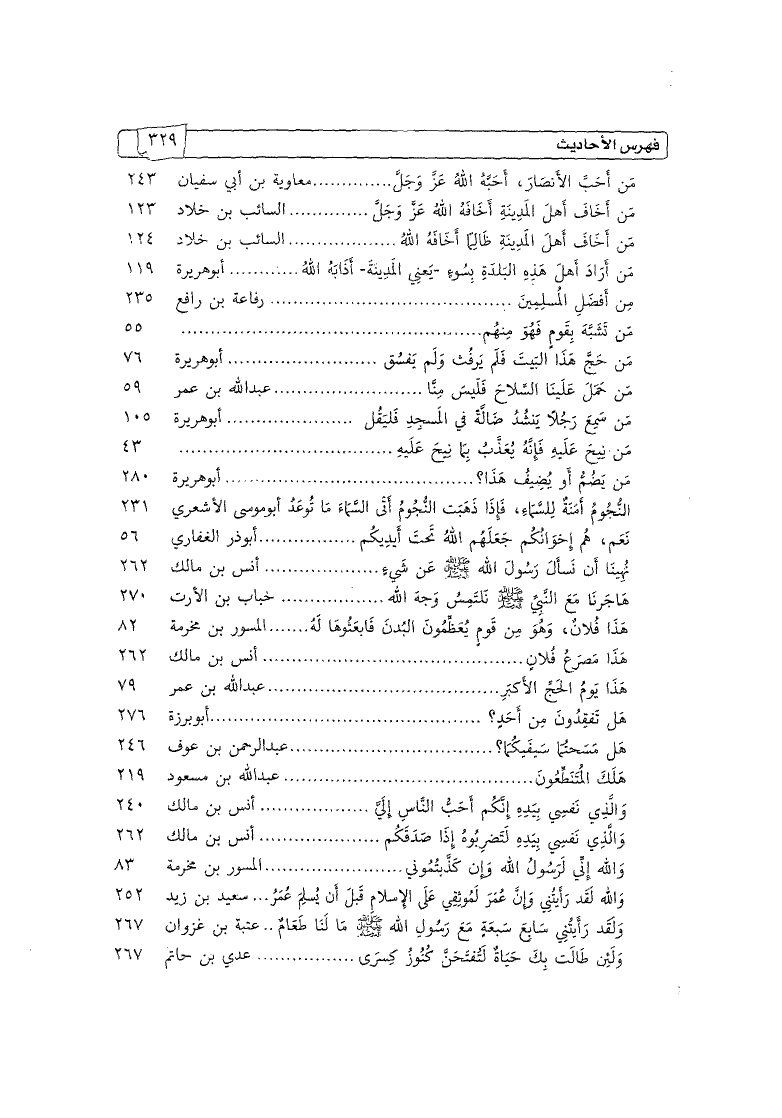 فهرس الأحاديث ٣٢٩
مَن أَحَبَّ الأَنصَارَ، أَحَبَّهُ اللهُ عَزَّ وَجَلَّ.............معاوية بن أبي سفيان ٢٤٣
مَن أَخَافَ أَهلَ المَدِينَةِ أَخَافَهُ اللهُ عَزَّ وَجَلَّ.............. السائب بن خلاد ١٢٣
مَن أَخَافَ أَهلَ المَدِينَةِ ظَالِمًا أَخَافَهُ اللهُ................... السائب بن خلاد ١٢٤
مَن أَرَادَ أَهلَ هَذِهِ البَلدَةِ بِسُوءٍ -يَعنِي المَدِينَةَ- أَذَابَهُ اللهُ............ أبوهريرة ١١٩
مِن أَفضَلِ المُسلِمِينَ ........................................... رفاعة بن رافع ٢٣٥
مَن تَشَبَّهَ بِقَومٍ فَهُوَ مِنهُم..................................................... ٥٥
مَن حَجَّ هَذَا البَيتَ فَلَم يَرفُث وَلَم يَفسُق ......................... أبوهريرة ٧٦
مَن حَمَلَ عَلَينَا السِّلاحَ فَلَيسَ مِنَّا ..........................عبدالله بن عمر ٥٩
مَن سَمِعَ رَجُلًا يَنشُدُ ضَالَّةً فِي المَسجِدِ فَليَقُل ...................... أبوهريرة ١٠٥
مَن نِيحَ عَلَيهِ فَإِنَّهُ يُعَذَّبُ بِمَا نِيحَ عَلَيهِ..................................... ٤٣
مَن يَضُمُّ أَو يُضِيفُ هَذَا؟............................................أبوهريرة ٢٨٠
النُّجُومُ أَمَنَةٌ لِلسَّمَاءِ، فَإِذَا ذَهَبَت النُّجُومُ أَتَى السَّمَاءَ مَا تُوعَدُ أبوموسى الأشعري ٢٣١
نَعَم، هُم إِخوَانُكُم جَعَلَهُم اللهُ تَحتَ أَيدِيكُم .................أبوذر الغفاري ٥٦
نُهِينَا أَن نَسأَلَ رَسُولَ الله ﷺ عَن شَيءٍ..................... أنس بن مالك ٢٦٢
هَاجَرنَا مَعَ النَّبِيِّ ﷺ نَلتَمِسُ وَجهَ الله .................. خباب بن الأرت ٢٧٠
هَذَا فُلانٌ، وَهُوَ مِن قَومٍ يُعَظِّمُونَ البُدنَ فَابعَثُوهَا لَهُ....... المسور بن مخرمة ٨٢
هَذَا مَصرَعُ فُلانٍ.............................................. أنس بن مالك ٢٦٢
هَذَا يَومُ الحَجِّ الأَكبَرِ.........................................عبدالله بن عمر ٧٩
هَل تَفقِدُونَ مِن أَحَدٍ؟ ...............................................أبوبرزة ٢٧٦
هَل مَسَحتُمَا سَيفَيكُمَا؟...................................عبدالرحمن بن عوف ٢٤٦
هَلَكَ المُتَنَطِّعُونَ............................................ عبدالله بن مسعود ٢١٩
وَالَّذِي نَفسِي بِيَدِهِ إِنَّكُم أَحَبُّ النَّاسِ إِلَيَّ ................... أنس بن مالك ٢٤٠
وَالَّذِي نَفسِي بِيَدِهِ لَتَضرِبُوهُ إِذَا صَدَقَكُم ..................... أنس بن مالك ٢٦٢
وَالله إِنِّي لَرَسُولُ الله وَإِن كَذَّبتُمُونِي ........................المسور بن مخرمة ٨٣
وَالله لَقَد رَأَيتُنِي وَإِنَّ عُمَرَ لَمُوثِقِي عَلَى الإِسلامِ قَبلَ أَن يُسلِمَ عُمَرُ... سعيد بن زيد ٢٥٢
وَلَقَد رَأَيتُنِي سَابِعَ سَبعَةٍ مَعَ رَسُولِ الله ﷺ مَا لَنَا طَعَامٌ.. عتبة بن غزوان ٢٦٧
وَلَئِن طَالَت بِكَ حَيَاةٌ لَتُفتَحَنَّ كُنُوزُ كِسرَى ................. عدي بن حاتم ٢٦٧